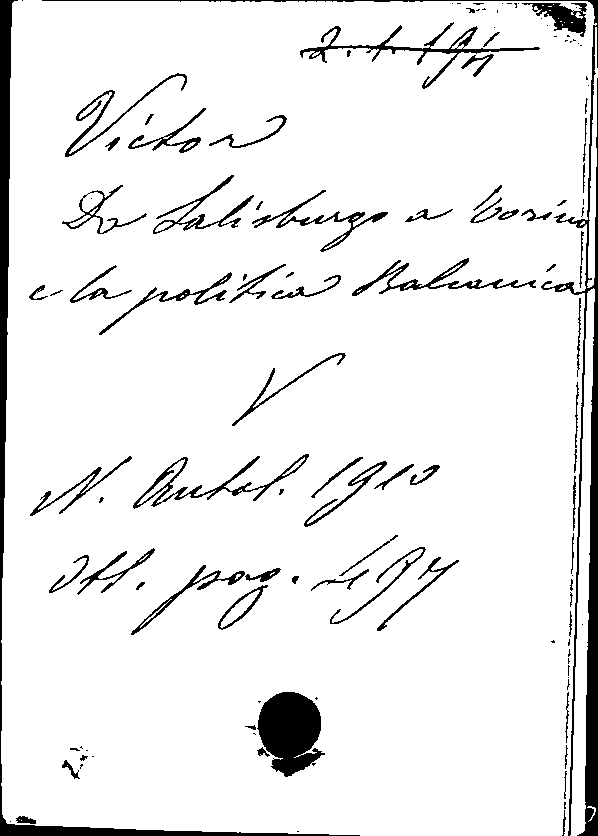 2.1.194
Victor
Da Salisburgo a Torino
e la politica Balcanica
V
N. Antol. 1910
Ott. pag. 497